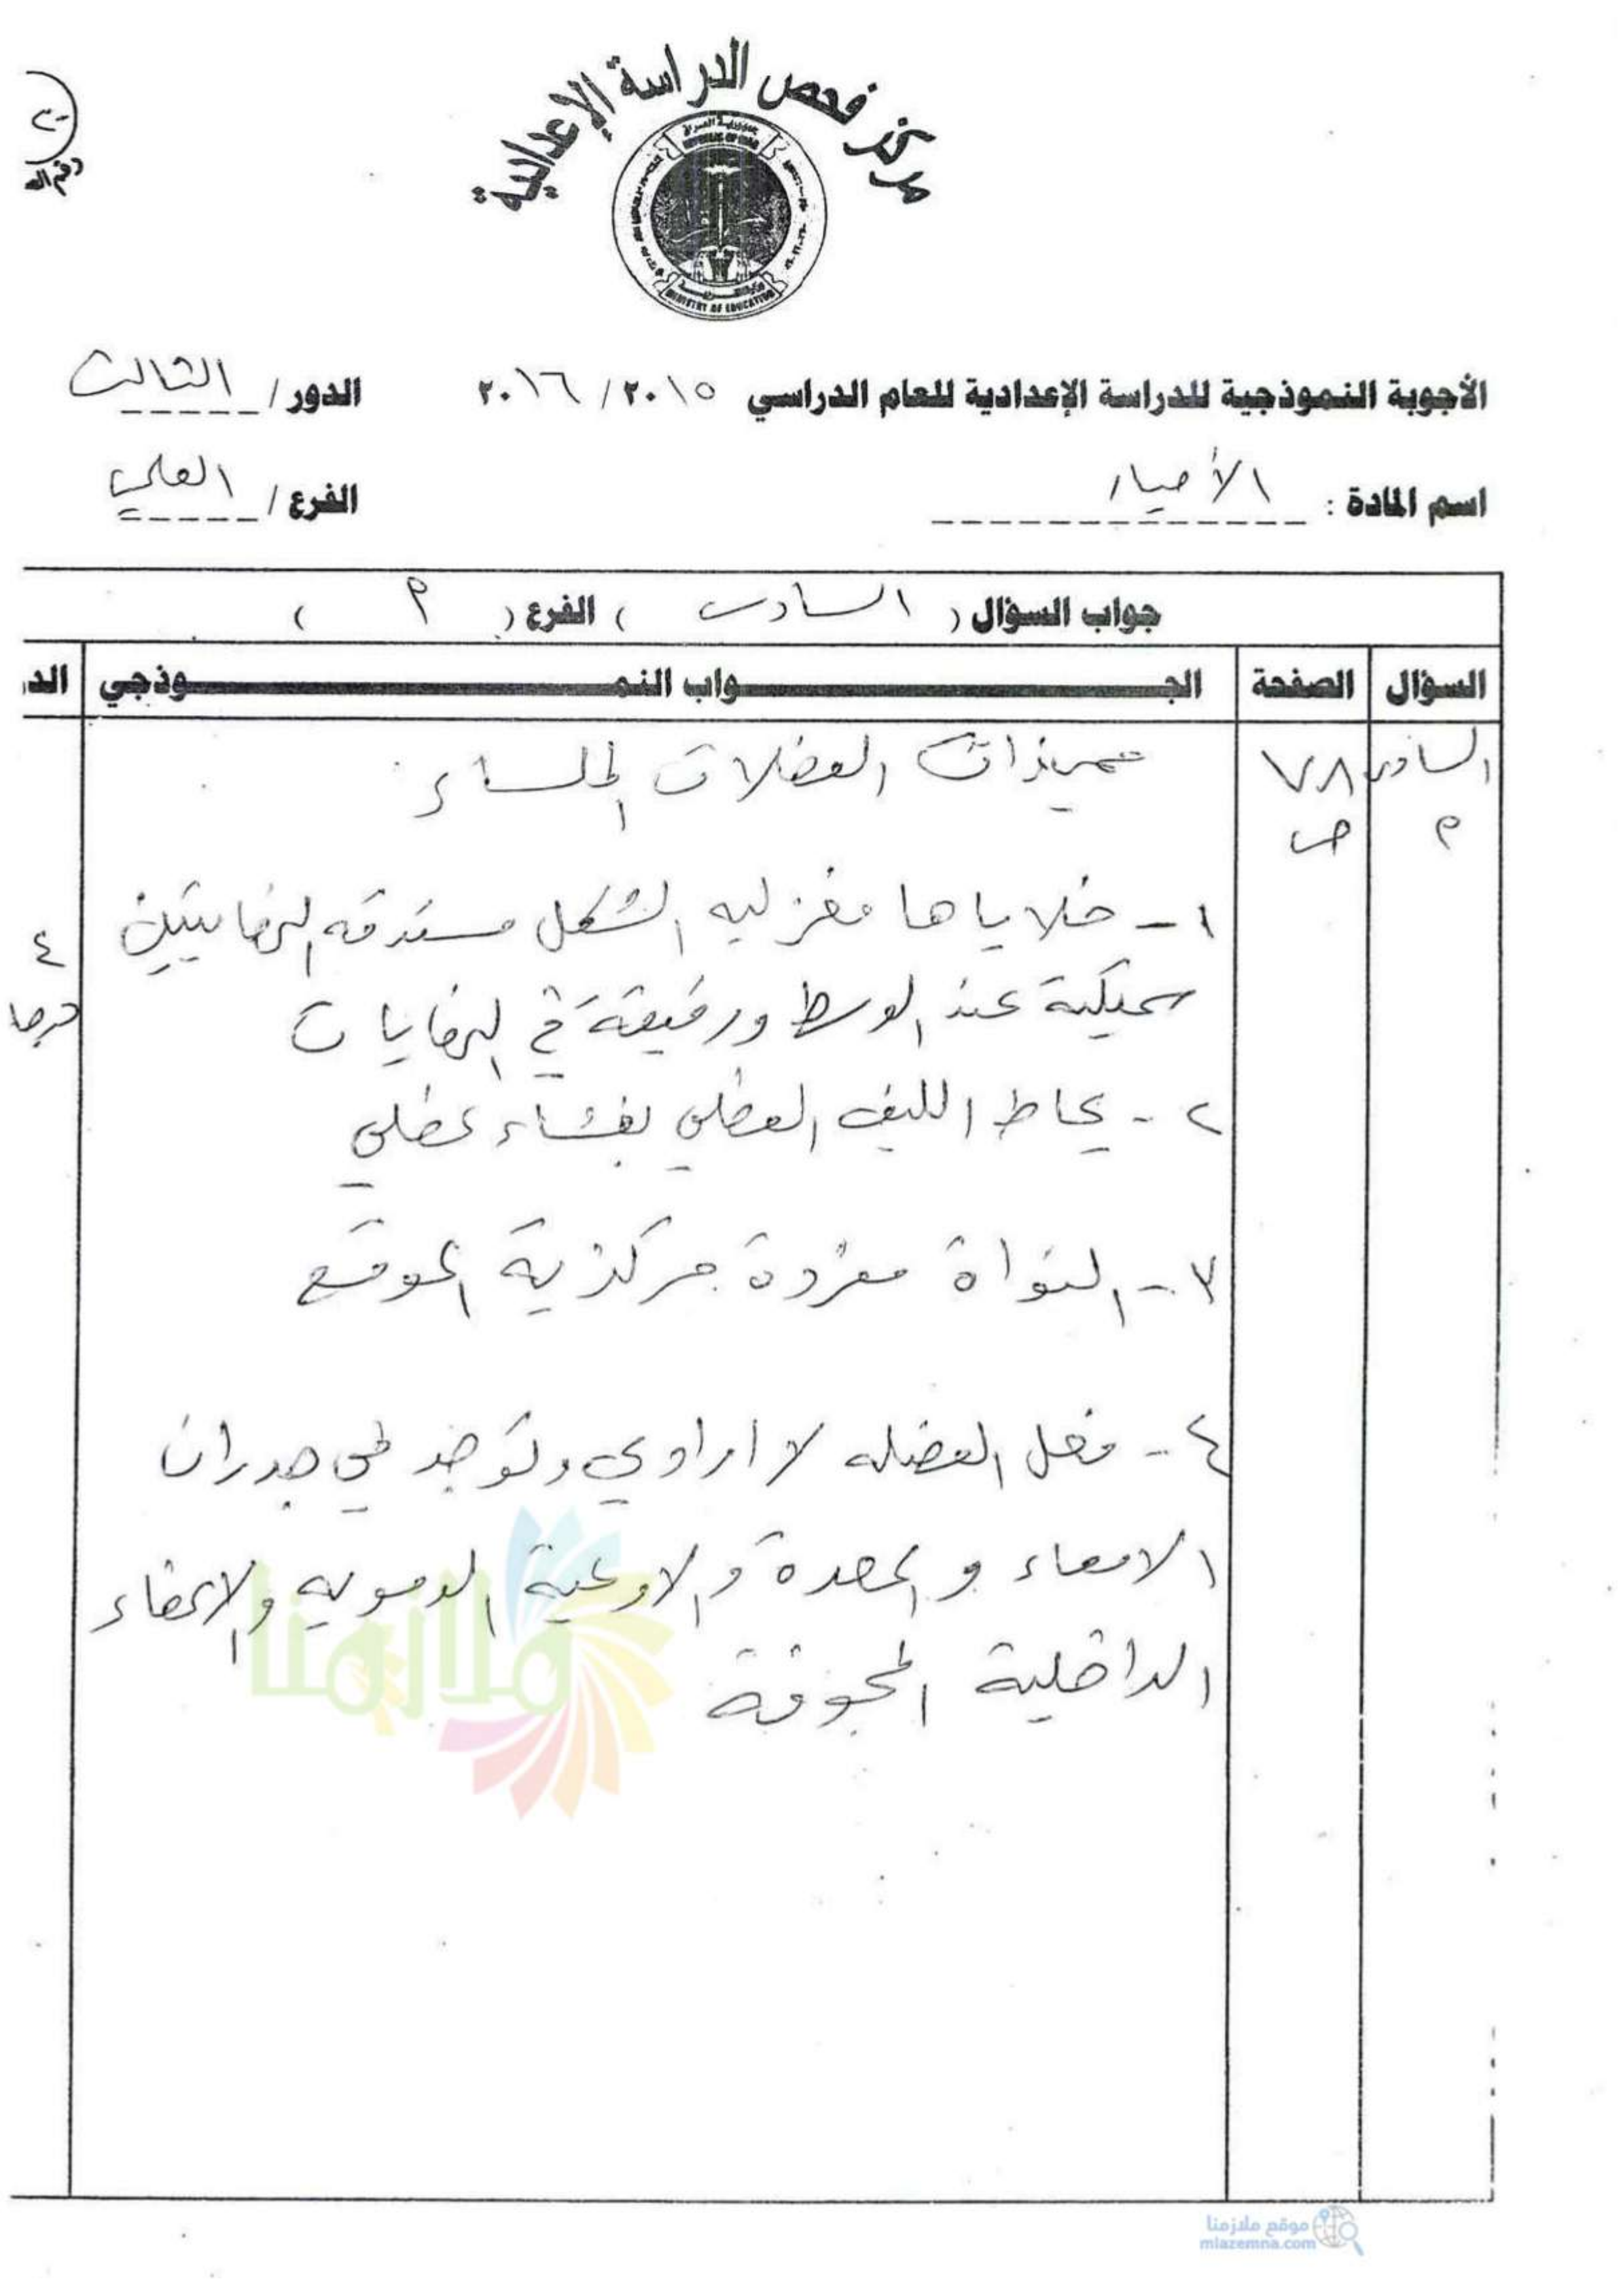 مركز فحص الدراسة الإعدادية
جمهورية العراق
REPUBLIC OF IRAQ
MINISTRY OF EDUCATION
رقم الـ
الأجوبة النموذجية للدراسة الإعدادية للعام الدراسي ٢٠١٥/ ٢٠١٦ الدور / الثالث
اسم المادة : الأحياء الفرع / العلمي
جواب السؤال ( السادس ) الفرع ( م )
السؤال الصفحة الجـــواب النمـــوذجي الد
السادس ٧٨ مميزات العضلات الملساء
م ص
١ - خلاياها مغزليه الشكل مستدقه النهايتين
٤
سميكة عند الوسط ورفيعة في النهايات
درجا
٢ - يحاط الليف العضلي بغشاء عضلي
٣ - النواة مفردة مركزية الموقع
٤ - فعل العضله لا ارادي وتوجد في جدران
الامعاء و المعدة والاوعية الدمويه والاعضاء
الداخلية المجوفة
ملازمنا
موقع ملازمنا
mlazemna.com